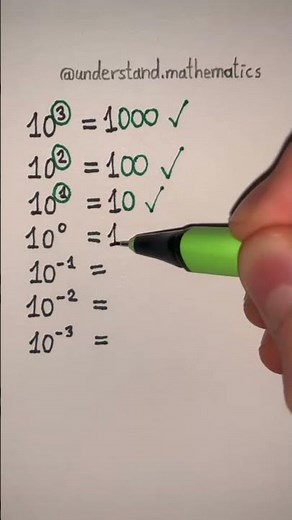 @understand.mathematics
10³ = 1000 ✓
10² = 100 ✓
10¹ = 10 ✓
10⁰ = 1
10⁻¹ =
10⁻² =
10⁻³ =